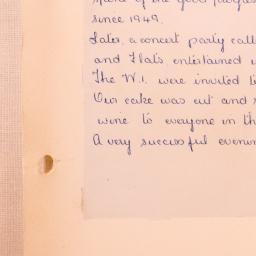 of the good progress
since 1949.
Later, a concert party call
and Flats entertained
The W.I. were invited to
Our cake was cut and
wine to everyone in th
A very successful evenin